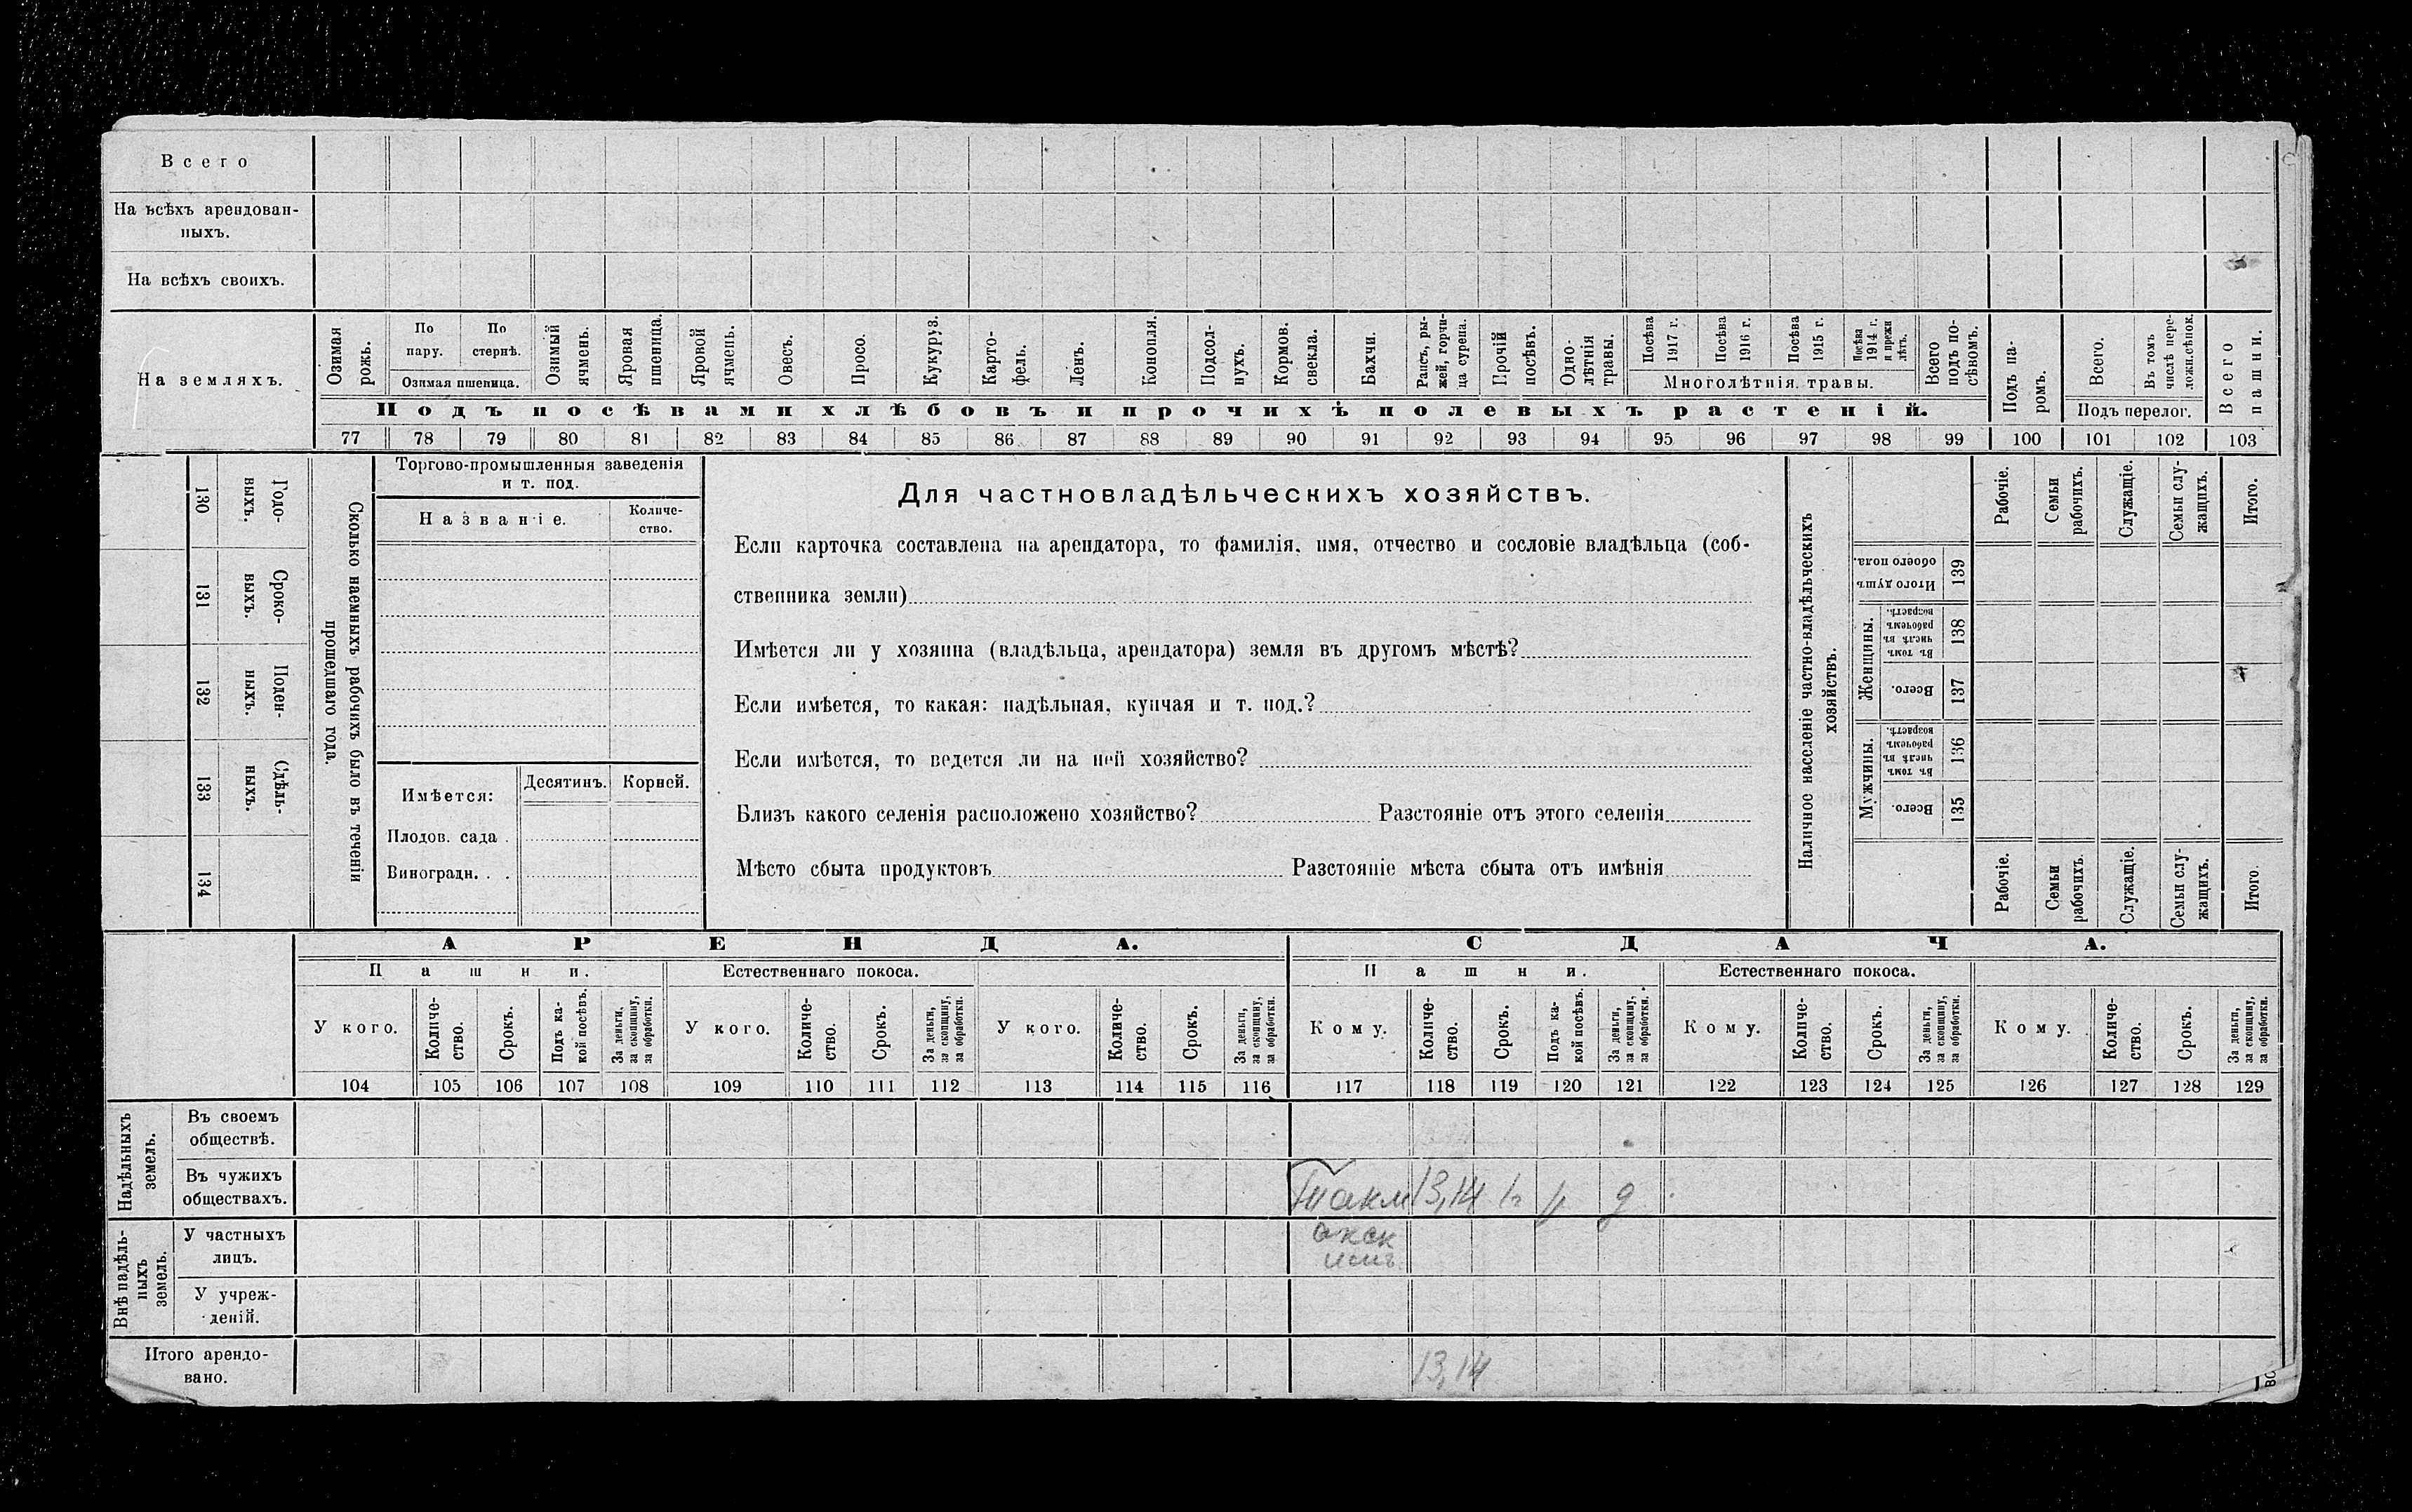 Всего
На всѣхъ арендован-
ныхъ.
На всѣхъ своихъ.
На земляхъ.
Озимая рожь.
По пару.
По стернѣ.
Озимая пшеница.
Озимый ячмень.
Яровая пшеница.
Яровой ячмень.
Овесъ.
Просо.
Кукуруз.
Карто-
фель.
Ленъ.
Конопля.
Подсол-
нухъ.
Кормов. свекла.
Бахчи.
Рапсъ, ры-
жей, горчи-
ца сурепа.
Прочій посѣвъ.
Одно-
лѣтнія травы.
Посѣва 1917 г.
Посѣва 1916 г.
Посѣва 1915 г.
Посѣва 1914 г. и прежн лѣтъ.
Многолѣтнія травы.
Всего подъ по-
сѣвомъ.
Подъ па-
ромъ.
Всего.
Въ томъ числѣ пере-
ложн.сѣнок.
Подъ перелог.
Всего пашни.
Подъ посѣвами хлѣбовъ и прочихъ полевыхъ растеній.
77 78 79 80 81 82 83 84 85 86 87 88 89 90 91 92 93 94 95 96 97 98 99 100 101 102 103
Годо-
выхъ.
130
Сроко-
выхъ.
131
Поден-
ныхъ.
132
Сдѣль-
ныхъ.
133
134
Сколько наемныхъ рабочихъ было въ теченіи
прошедшаго года.
Торгово-промышленныя заведенія
и т. под.
Названіе.
Количе-
ство.
Имѣется:
Десятинъ.
Корней.
Плодов. сада .
Виноградн. . .
Для частновладѣльческихъ хозяйствъ.
Если карточка составлена на арендатора, то фамилія, имя, отчество и сословіе владѣльца (соб-
ственника земли)
Имѣется ли у хозяина (владѣльца, арендатора) земля въ другомъ мѣстѣ?
Если имѣется, то какая: надѣльная, купчая и т. под.?
Если имѣется, то ведется ли на ней хозяйство?
Близъ какого селенія расположено хозяйство? Разстояніе отъ этого селенія
Мѣсто сбыта продуктовъ Разстояніе мѣста сбыта отъ имѣнія
Наличное населеніе частно-владѣльческихъ
хозяйствъ.
Рабочіе.
Семьи рабочихъ.
Служащіе.
Семьи слу-
жащихъ.
Итого.
Итого душъ обоего пола.
139
Женщины.
Въ томъ числѣ въ рабочемъ возрастѣ.
138
Всего.
137
Мужчины.
Въ томъ числѣ въ рабочемъ возрастѣ.
136
Всего.
135
Рабочіе.
Семьи рабочихъ.
Служащіе.
Семьи слу-
жащихъ.
Итого.
АРЕНДА. СДАЧА.
Пашни. Естественнаго покоса. Пашни. Естественнаго покоса.
У кого.
Количе-
ство.
Срокъ.
Подъ ка-
кой посѣвъ.
За деньги, за скопщину, за обработки.
У кого.
Количе-
ство.
Срокъ.
За деньги, за скопщину, за обработки.
У кого.
Количе-
ство.
Срокъ.
За деньги, за скопщину, за обработки.
Кому.
Количе-
ство.
Срокъ.
Подъ ка-
кой посѣвъ.
За деньги, за скопщину, за обработки.
Кому.
Количе-
ство.
Срокъ.
За деньги, за скопщину, за обработки.
Кому.
Количе-
ство.
Срокъ.
За деньги, за скопщину, за обработки.
104 105 106 107 108 109 110 111 112 113 114 115 116 117 118 119 120 121 122 123 124 125 126 127 128 129
Надѣльныхъ земель.
Въ своемъ
обществѣ.
Въ чужихъ
обществахъ.
13,14
д
Внѣ надѣль-
ныхъ земель.
У частныхъ
лицъ.
У учреж-
деній.
Итого арендо-
вано.
13,14